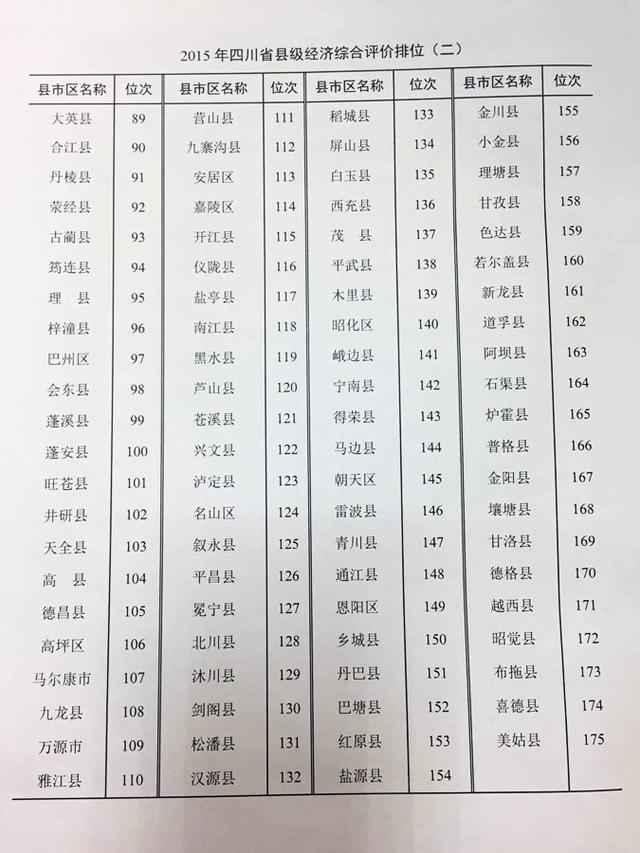 2015年四川省县级经济综合评价排位（二）
县市区名称 位次 县市区名称 位次 县市区名称 位次 县市区名称 位次
大英县 89 营山县 111 稻城县 133 金川县 155
合江县 90 九寨沟县 112 屏山县 134 小金县 156
丹棱县 91 安居区 113 白玉县 135 理塘县 157
荥经县 92 嘉陵区 114 西充县 136 甘孜县 158
古蔺县 93 开江县 115 茂 县 137 色达县 159
筠连县 94 仪陇县 116 平武县 138 若尔盖县 160
理 县 95 盐亭县 117 木里县 139 新龙县 161
梓潼县 96 南江县 118 昭化区 140 道孚县 162
巴州区 97 黑水县 119 峨边县 141 阿坝县 163
会东县 98 芦山县 120 宁南县 142 石渠县 164
蓬溪县 99 苍溪县 121 得荣县 143 炉霍县 165
蓬安县 100 兴文县 122 马边县 144 普格县 166
旺苍县 101 泸定县 123 朝天区 145 金阳县 167
井研县 102 名山区 124 雷波县 146 壤塘县 168
天全县 103 叙永县 125 青川县 147 甘洛县 169
高 县 104 平昌县 126 通江县 148 德格县 170
德昌县 105 冕宁县 127 恩阳区 149 越西县 171
高坪区 106 北川县 128 乡城县 150 昭觉县 172
马尔康市 107 沐川县 129 丹巴县 151 布拖县 173
九龙县 108 剑阁县 130 巴塘县 152 喜德县 174
万源市 109 松潘县 131 红原县 153 美姑县 175
雅江县 110 汉源县 132 盐源县 154